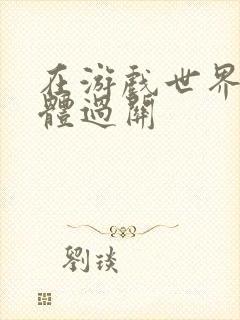 在游戲世界
體過關
劉琰